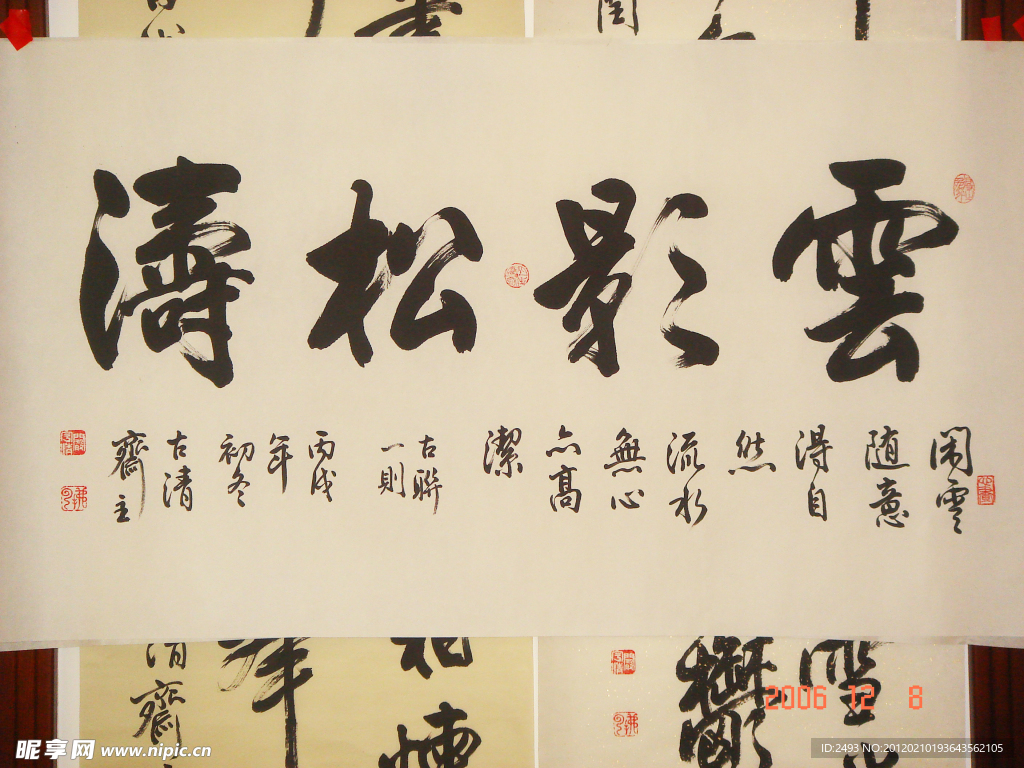 雲影松濤
閑雲
随意
得自
然
流水
無心
亦高
潔
古聯
一則
丙戌
年
初冬
古清
齋主
清
齋
2006 12 8
昵享网 www.nipic.cn
ID:2493 NO:20120210193643562105